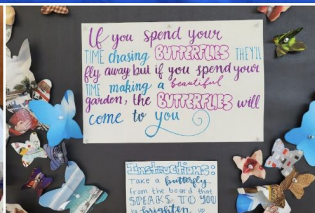 If you spend your
TIME chasing BUTTERFLIES THEY'LL
fly away but if you spend your
TIME making a beautiful
garden, the BUTTERFLIES will
come to you
Instructions:
Take a butterfly
from the board that
SPEAKS TO YOU
brighten